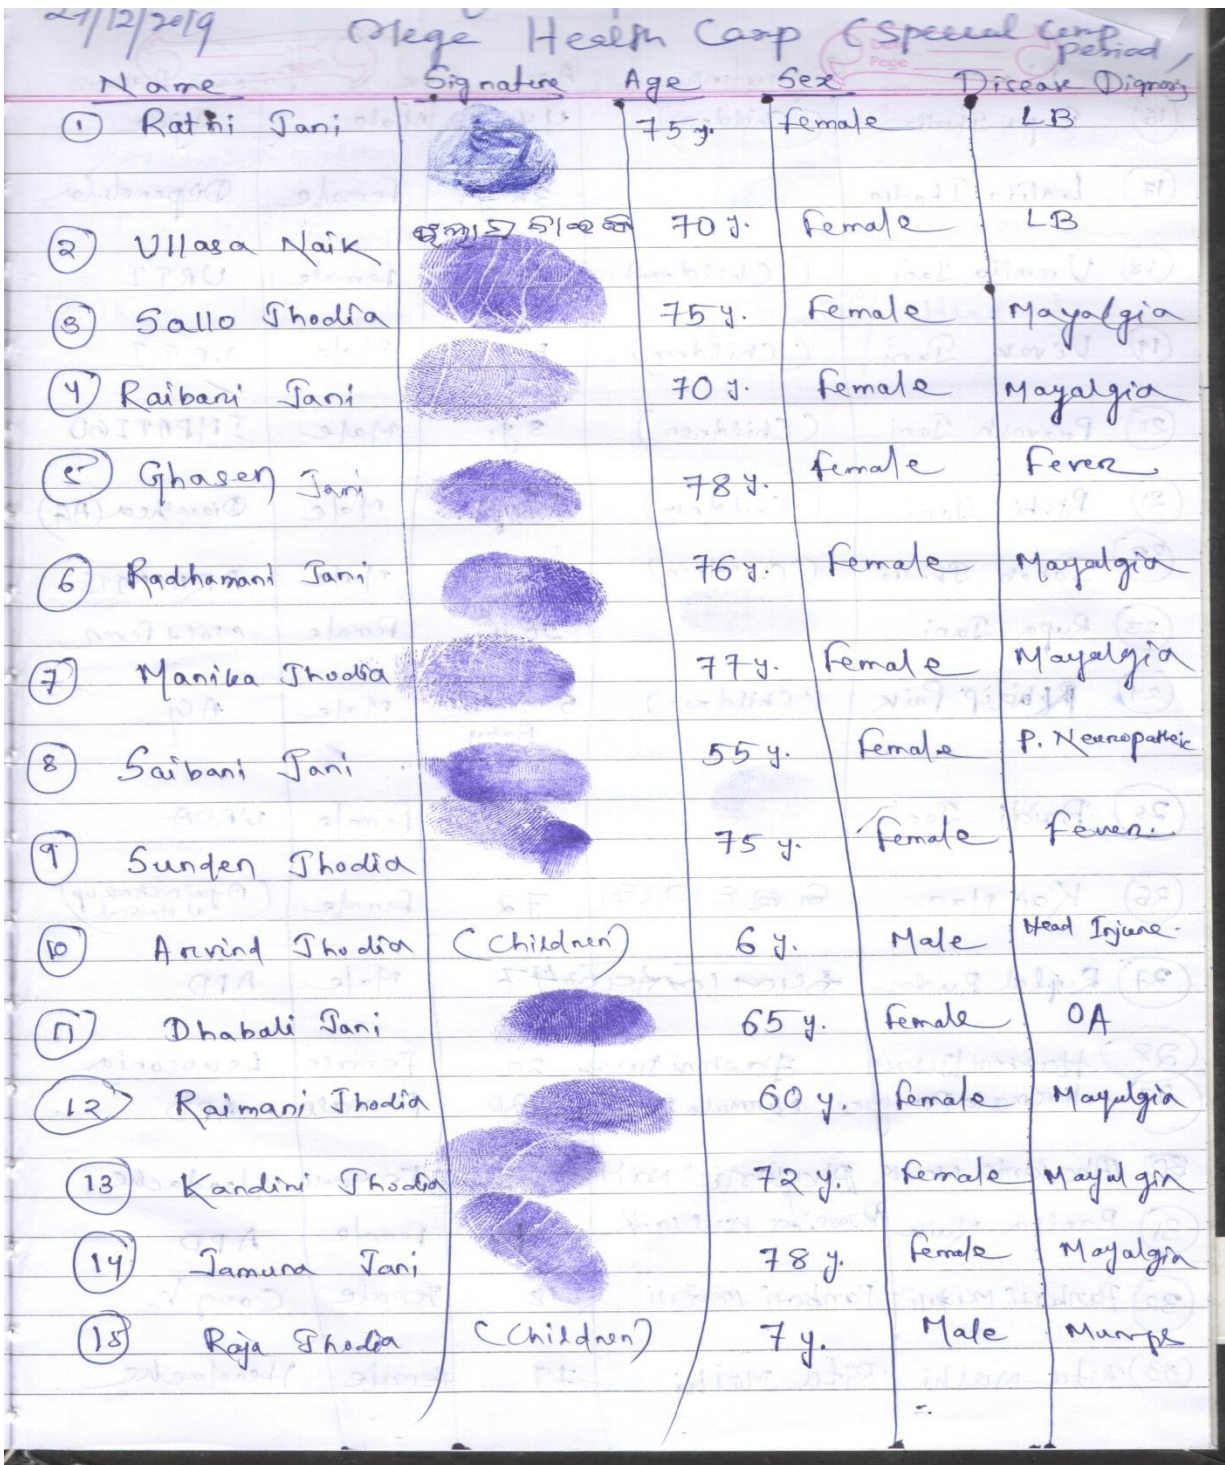 21/12/2019 Mega Health Camp (Special Camp period)
Name Signature Age Sex Disease Dignosis
1 Rathi Jani 75 y. female LB
2 Ullasa Naik 70 y. female LB
3 Sallo Jhodia 75 y. female Mayalgia
4 Raibani Jani 70 y. female Mayalgia
5 Ghasen Jani 78 y. female Fever
6 Radhamani Jani 76 y. Female Mayalgia
7 Manika Jhodia 77 y. Female Mayalgia
8 Saibani Jani 55 y. female P. Neuropatheic
9 Sunden Jhodia 75 y. Female Fever.
10 Arvind Jhodia (Children) 6 y. Male Head Injure.
11 Dhabali Jani 65 y. female OA
12 Raimani Jhodia 60 y. female Mayalgia
13 Kandini Jhodia 72 y. Female Mayalgia
14 Jamuna Jani 78 y. female Mayalgia
15 Raja Jhodia (Children) 7 y. Male Mumps